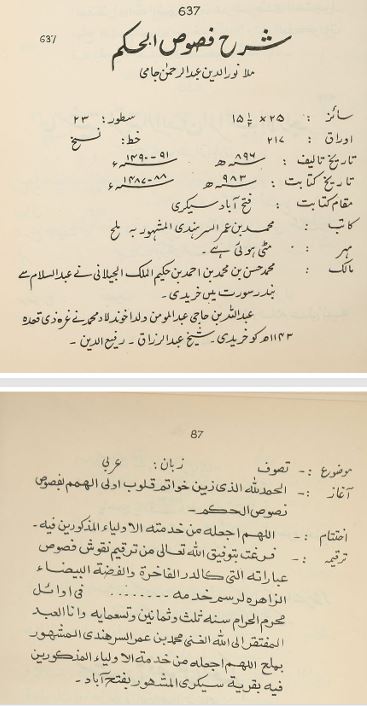 637
637
شرح فصوص الحکم
ملا نورالدین عبدالرحمٰن جامی
سائز : ۲۵ × ۱۵½ سطور: ۲۳
اوراق : ۲۱۷ خط: نسخ
تاریخ تالیف : ۸۹۶ھ ۹۱-۱۴۹۰ء
تاریخ کتابت : ۹۸۳ھ ۸۸-۱۴۸۷ء
مقام کتابت : فتح آباد سیکری
کاتب : محمد بن عمر السرہندی المشہور بہ ملح
مہر : مٹی ہوئی ہے۔
مالک : محمد حسن بن محمد بن احمد بن حکیم الملک الجیلانی نے عبدالسلام سے
بندر سورت میں خریدی۔
عبداللہ بن حاجی عبدالمومن ولد اخوند لاد محمد نے غرہ ذی قعدہ
۱۱۴۳ھ کو خریدی۔ شیخ عبدالرزاق ۔ رفیع الدین ۔
87
موضوع :- تصوف زبان: عربی
آغاز :- الحمدللہ الذی زین خواتم قلوب اولی الھمم بفصوص
نصوص الحکم۔
اختتام :- اللھم اجعلہ من خدمتہ الاولیاء المذکورین فیہ۔
ترقیمہ :- فرغت بتوفیق اللہ تعالٰی من ترقیم نقوش فصوص
عباراتہ التی کالدر الفاخرۃ والفضۃ البیضاء
الزاھرہ لرسم خدمہ ........ فی اوائل
محرم الحرام سنہ ثلث وثمانین وتسعمایہ وانا العبد
المفتقر الی اللہ الغنی محمد بن عمر السرھندی المشہور
بملح اللھم اجعلہ من خدمۃ الاولیاء المذکورین
فیہ بقریۃ سیکری المشہور بفتح آباد ۔